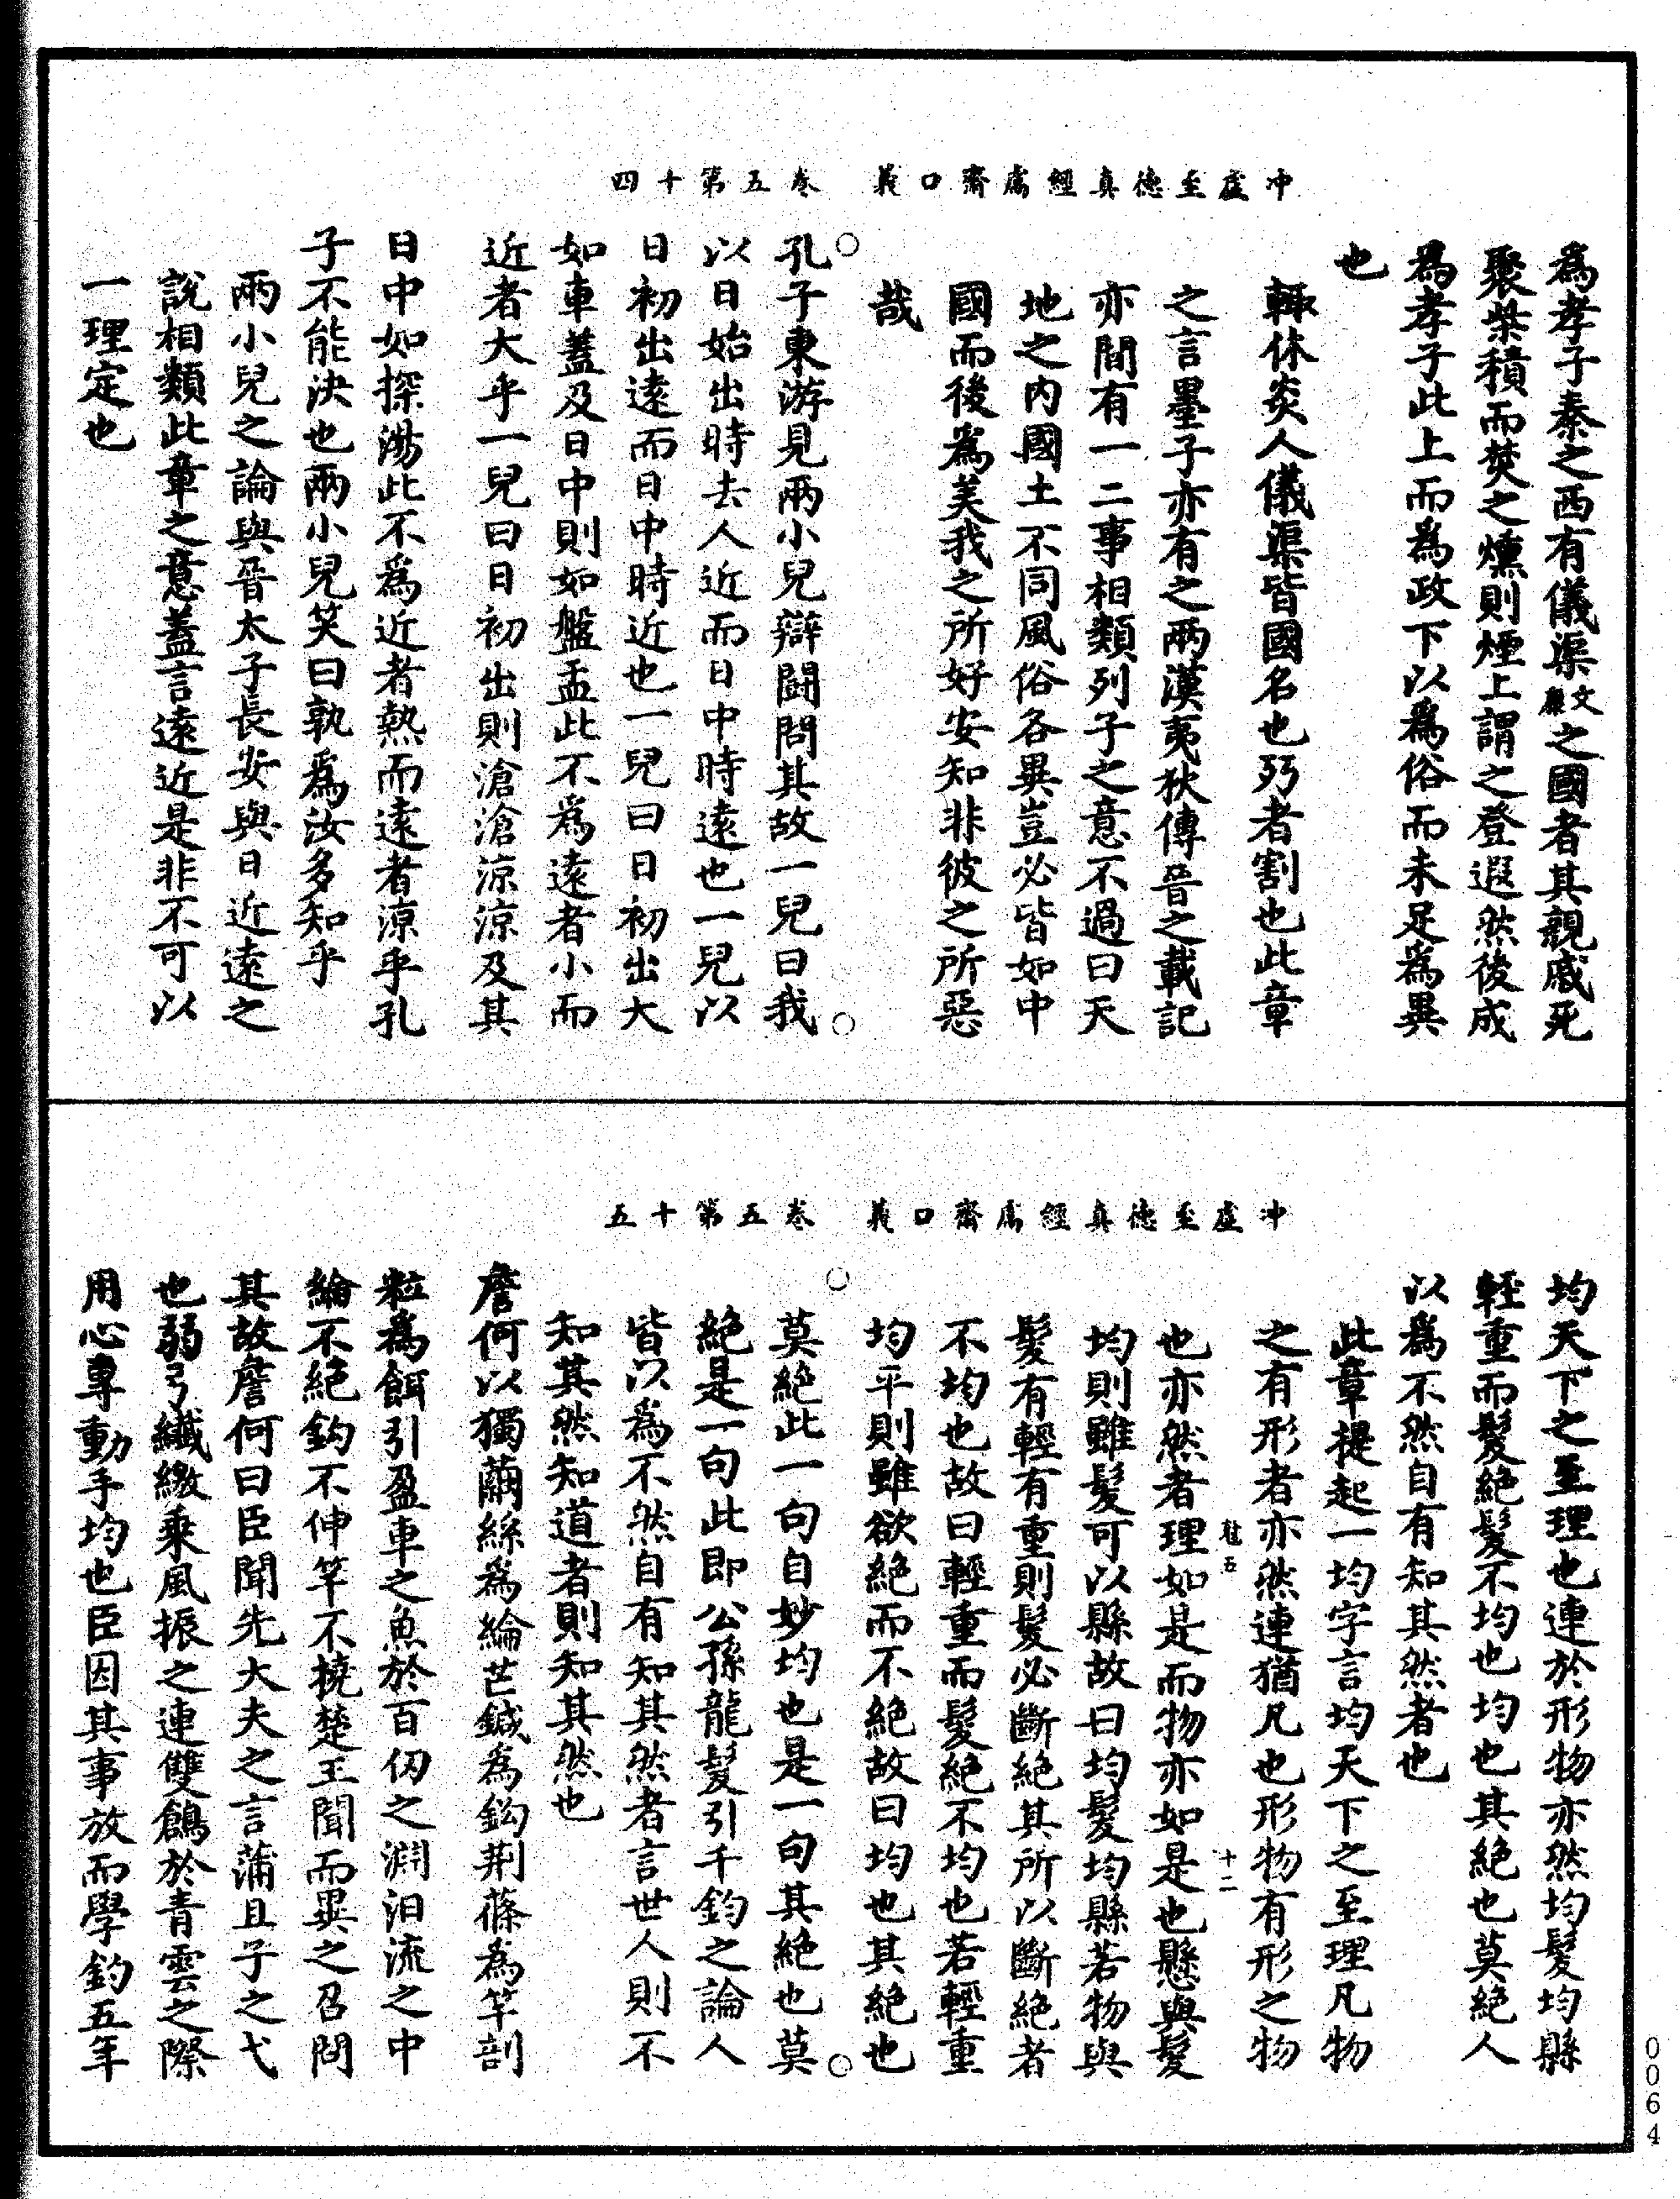 冲虛至德真經鬳齋口義　卷五第十四
為孝子秦之西有儀渠文康之國者其親戚死
聚柴積而焚之燻則煙上謂之登遐然後成
為孝子此上而為政下以為俗而未足為異
也
輙休炎人儀渠皆國名也歹者割也此章
之言墨子亦有之兩漢夷狄傳晉之載記
亦間有一二事相類列子之意不過曰天
地之內國土不同風俗各異豈必皆如中
國而後為美我之所好安知非彼之所惡
哉
○孔子東游見兩小兒辯鬪問其故一兒曰我○
以日始出時去人近而日中時遠也一兒以
日初出遠而日中時近也一兒曰日初出大
如車蓋及日中則如盤盂此不為遠者小而
近者大乎一兒曰日初出則滄滄涼涼及其
日中如探湯此不為近者熱而遠者涼乎孔
子不能決也兩小兒笑曰孰為汝多知乎
兩小兒之論與晉太子長安與日近遠之
說相類此章之意蓋言遠近是非不可以
一理定也
冲虛至德真經鬳齋口義　卷五第十五
均天下之至理也連於形物亦然均髮均縣
輕重而髮絕髮不均也均也其絕也莫絕人
以為不然自有知其然者也
此章提起一均字言均天下之至理凡物
之有形者亦然連猶凡也形物有形之物
維五　十二
也亦然者理如是而物亦如是也懸與髮
均則雖髮可以縣故曰均髮均縣若物與
髮有輕有重則髮必斷絕其所以斷絕者
不均也故曰輕重而髮絕不均也若輕重
均平則雖欲絕而不絕故曰均也其絕也
○莫絕此一句自妙均也是一句其絕也莫○
絕是一句此即公孫龍髮引千鈞之論人
皆以為不然自有知其然者言世人則不
知其然知道者則知其然也
詹何以獨繭絲為綸芒鍼為鈎荆蓧為竿剖
粒為餌引盈車之魚於百仞之淵汩流之中
綸不絕鈎不伸竿不撓楚王聞而異之召問
其故詹何曰臣聞先大夫之言蒲且子之弋
也弱弓纖繳乘風振之連雙鶬於青雲之際
用心專動手均也臣因其事放而學釣五年
0064